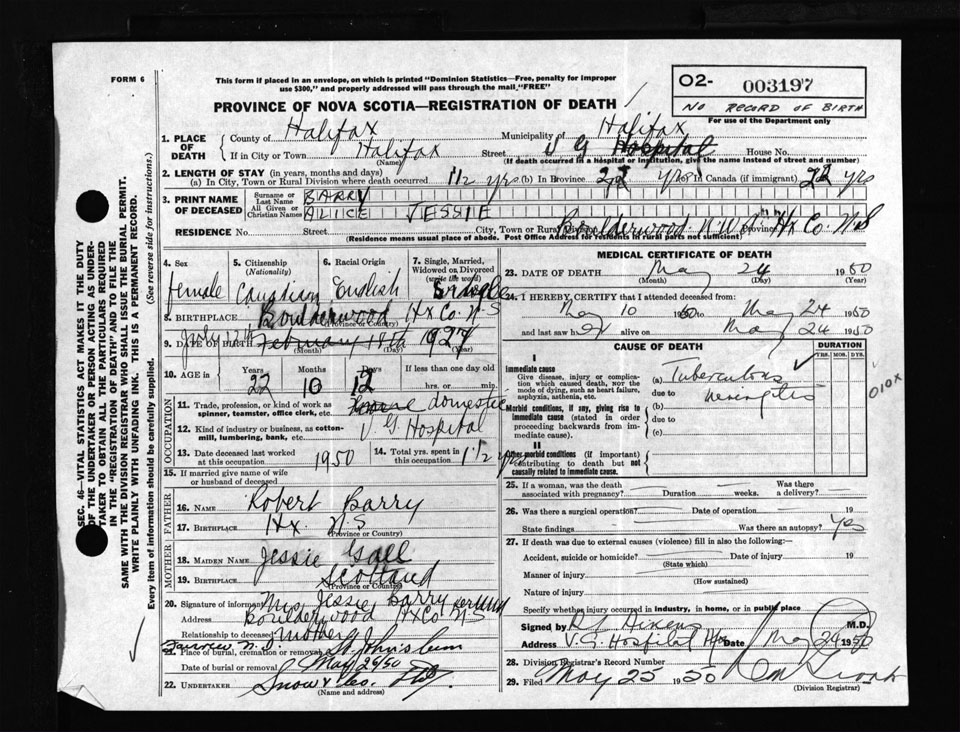 FORM 6
This form if placed in an envelope, on which is printed "Dominion Statistics—Free, penalty for improper
use $300," and properly addressed will pass through the mail "FREE"
O2- 003197
NO RECORD OF BIRTH
For use of the Department only
PROVINCE OF NOVA SCOTIA—REGISTRATION OF DEATH
1. PLACE OF DEATH
County of Halifax Municipality of Halifax
If in City or Town Halifax Street V G Hospital House No.
(Name) (If death occurred in a hospital or institution, give the name instead of street and number)
2. LENGTH OF STAY (in years, months and days)
(a) In City, Town or Rural Division where death occurred 1 1/2 yrs (b) In Province yrs In Canada (if immigrant) yrs
3. PRINT NAME OF DECEASED
Surname or Last Name BARRY
All Given or Christian Names ALICE JESSIE
RESIDENCE No. Street City, Town or Rural Division Boulderwood N.W.A. Province Hx Co. N.S
(Residence means usual place of abode. Post Office Address for residents in rural parts not sufficient)
4. Sex
female
5. Citizenship
(Nationality)
Canadian
6. Racial Origin
English
7. Single, Married,
Widowed or Divorced
(write the word)
Single
8. BIRTHPLACE Boulderwood Hx Co. N.S
(Province or Country)
9. DATE OF BIRTH July 12th February 1927
(Month) (Day) (Year)
10. AGE in Years Months Days If less than one day old
32 10 12 hrs. or min.
OCCUPATION
11. Trade, profession, or kind of work as
spinner, teamster, office clerk, etc. domestic
12. Kind of industry or business, as cotton-
mill, lumbering, bank, etc. V.G. Hospital
13. Date deceased last worked
at this occupation 1950
14. Total yrs. spent in
this occupation 1 1/2 yrs
15. If married give name of wife
or husband of deceased
FATHER
16. NAME Robert Barry
17. BIRTHPLACE Hx. N.S
(Province or Country)
MOTHER
18. MAIDEN NAME Jessie Gall
19. BIRTHPLACE Scotland
(Province or Country)
20. Signature of informant Mrs Jessie Barry
Address Boulderwood Hx Co N.S
Relationship to deceased mother
Fairview N.S.
21. Place of burial, cremation or removal St John's Cem
Date of burial or removal May 25/50
22. UNDERTAKER Snow & Co.
(Name and address)
MEDICAL CERTIFICATE OF DEATH
23. DATE OF DEATH May 24 1950
(Month) (Day) (Year)
24. I HEREBY CERTIFY that I attended deceased from:
May 10 1950 to May 24 1950
and last saw her alive on May 24 1950
CAUSE OF DEATH
DURATION
YRS. MOS. DYS.
I
Immediate cause
Give disease, injury or compli-
cation which caused death, not the
mode of dying, such as heart failure,
asphyxia, asthenia, etc.
(a) Tuberculous
due to meningitis
010X
Morbid conditions, if any, giving rise to
immediate cause (stated in order
proceeding backwards from im-
mediate cause).
(b)
due to
(c)
II
Other morbid conditions (if important)
contributing to death but not
causally related to immediate cause.
25. If a woman, was the death
associated with pregnancy? Duration weeks. Was there
a delivery?
26. Was there a surgical operation? Date of operation 19
State findings Was there an autopsy? Yes
27. If death was due to external causes (violence) fill in also the following:—
Accident, suicide or homicide? Date of injury 19
(State which)
Manner of injury
(How sustained)
Nature of injury
Specify whether injury occurred in industry, in home, or in public place
Signed by M.D.
Address V.G. Hospital Hfx Date May 24 1950
28. Division Registrar's Record Number
29. Filed May 25 1950
(Division Registrar)
SEC. 46—VITAL STATISTICS ACT MAKES IT THE DUTY
OF THE UNDERTAKER OR PERSON ACTING AS UNDER-
TAKER TO OBTAIN ALL THE PARTICULARS REQUIRED
IN THE "REGISTRATION OF DEATH" AND TO FILE THE
SAME WITH THE DIVISION REGISTRAR WHO SHALL ISSUE THE BURIAL PERMIT.
WRITE PLAINLY WITH UNFADING INK. THIS IS A PERMANENT RECORD.
Every item of information should be carefully supplied. (See reverse side for instructions.)